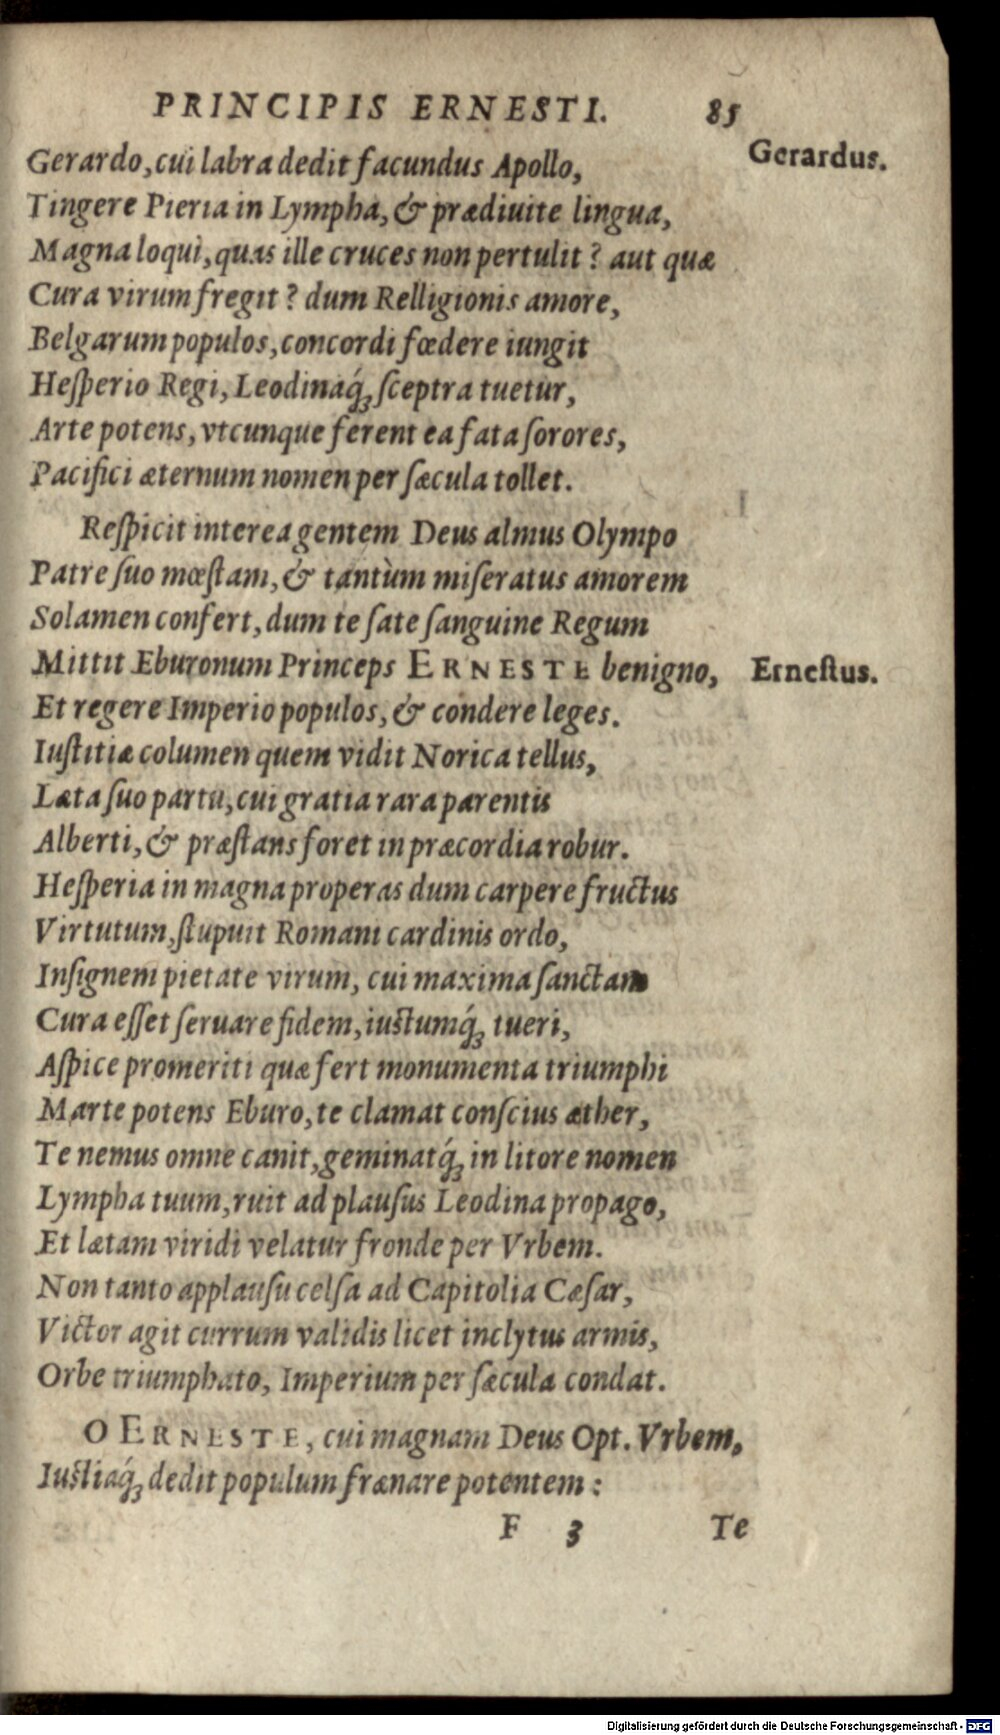 PRINCIPIS ERNESTI. 85
Gerardo, cui labra dedit facundus Apollo, Gerardus.
Tingere Pieria in Lympha, & prædiuite lingua,
Magna loqui, quas ille cruces non pertulit? aut quæ
Cura virum fregit? dum Relligionis amore,
Belgarum populos, concordi fœdere iungit
Heſperio Regi, Leodinaq́ꝫ ſceptra tuetur,
Arte potens, vtcunque ferent ea fata ſorores,
Pacifici æternum nomen per ſæcula tollet.
Reſpicit interea gentem Deus almus Olympo
Patre ſuo mœſtam, & tantùm miſeratus amorem
Solamen confert, dum te ſate ſanguine Regum
Mittit Eburonum Princeps ERNESTE benigno, Erneſtus.
Et regere Imperio populos, & condere leges.
Iuſtitiæ columen quem vidit Norica tellus,
Læta ſuo partu, cui gratia rara parentis
Alberti, & præſtans foret in præcordia robur.
Heſperia in magna properas dum carpere fructus
Virtutum, ſtupuit Romani cardinis ordo,
Inſignem pietate virum, cui maxima ſanctam
Cura eſſet ſeruare fidem, iustumq́ꝫ tueri,
Aſpice promeriti quæ fert monumenta triumphi
Marte potens Eburo, te clamat conſcius æther,
Te nemus omne canit, geminatq́ꝫ in litore nomen
Lympha tuum, ruit ad plauſus Leodina propago,
Et lætam viridi velatur fronde per Vrbem.
Non tanto applauſu celſa ad Capitolia Cæſar,
Victor agit currum validis licet inclytus armis,
Orbe triumphato, Imperium per ſæcula condat.
O ERNESTE, cui magnam Deus Opt. Vrbem,
Iustiaq́ꝫ dedit populum frænare potentem:
F 3 Te
Digitalisierung gefördert durch die Deutsche Forschungsgemeinschaft - DFG